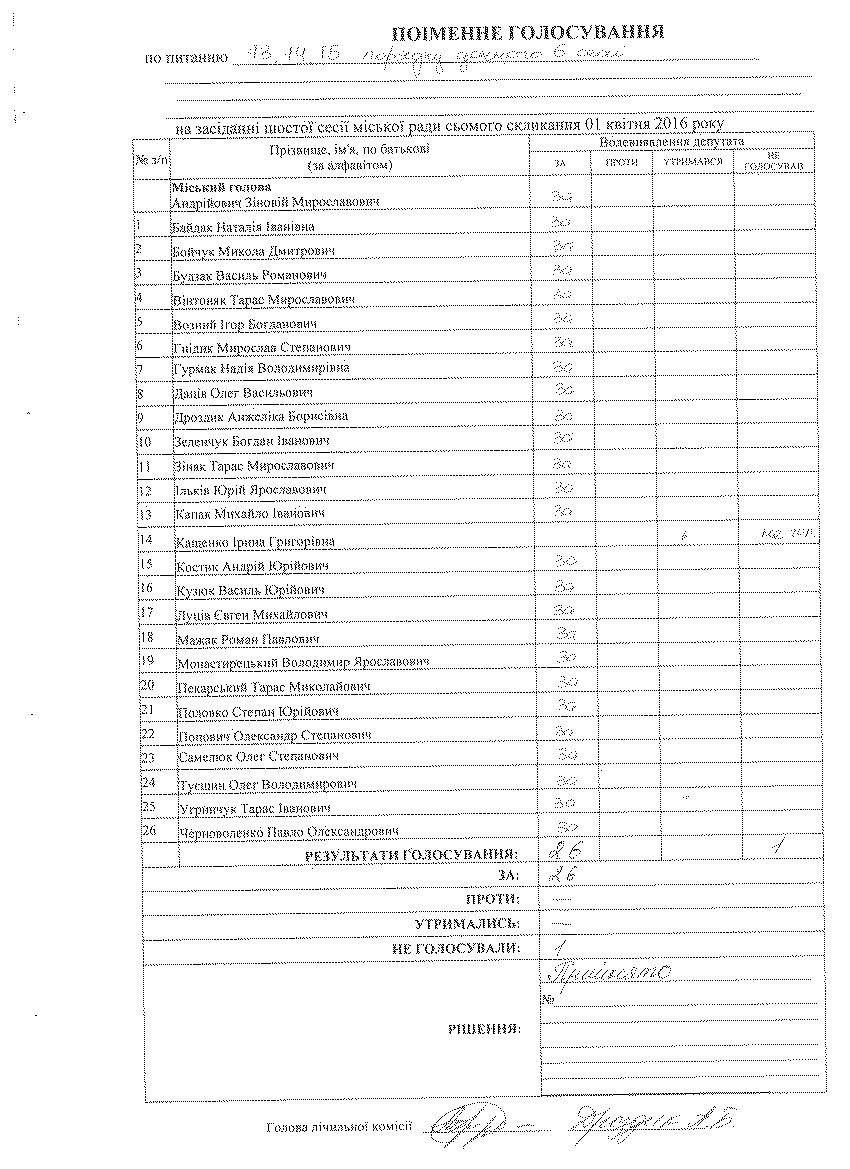 ПОІМЕННЕ ГОЛОСУВАННЯ
по питанню 13, 14, 15 порядку денного 6 сесії
на засіданні шостої сесії міської ради сьомого скликання 01 квітня 2016 року
№ з/п Прізвище, ім'я, по батькові (за алфавітом) Волевиявлення депутата
ЗА ПРОТИ УТРИМАВСЯ НЕ ГОЛОСУВАВ
Міський голова
Андрійович Зіновій Мирославович За
1 Байдак Наталія Іванівна За
2 Бойчук Микола Дмитрович За
3 Будзак Василь Романович За
4 Вінтоняк Тарас Мирославович За
5 Возний Ігор Богданович За
6 Гнідик Мирослав Степанович За
7 Гурмак Надія Володимирівна За
8 Даців Олег Васильович За
9 Дроздик Анжеліка Борисівна За
10 Зеленчук Богдан Іванович За
11 Зінак Тарас Мирославович За
12 Ільків Юрій Ярославович За
13 Капак Михайло Іванович За
14 Кащенко Ірина Григорівна не гол.
15 Костик Андрій Юрійович За
16 Кузюк Василь Юрійович За
17 Луців Євген Михайлович За
18 Мажак Роман Павлович За
19 Монастирецький Володимир Ярославович За
20 Пекарський Тарас Миколайович За
21 Половко Степан Юрійович За
22 Попович Олександр Степанович За
23 Самелюк Олег Степанович За
24 Тусшин Олег Володимирович За
25 Угринчук Тарас Іванович За
26 Черноволенко Павло Олександрович За
РЕЗУЛЬТАТИ ГОЛОСУВАННЯ: 26 1
ЗА: 26
ПРОТИ: —
УТРИМАЛИСЬ: —
НЕ ГОЛОСУВАЛИ: 1
РІШЕННЯ: Прийнято
№
Голова лічильної комісії — Дроздик А Б